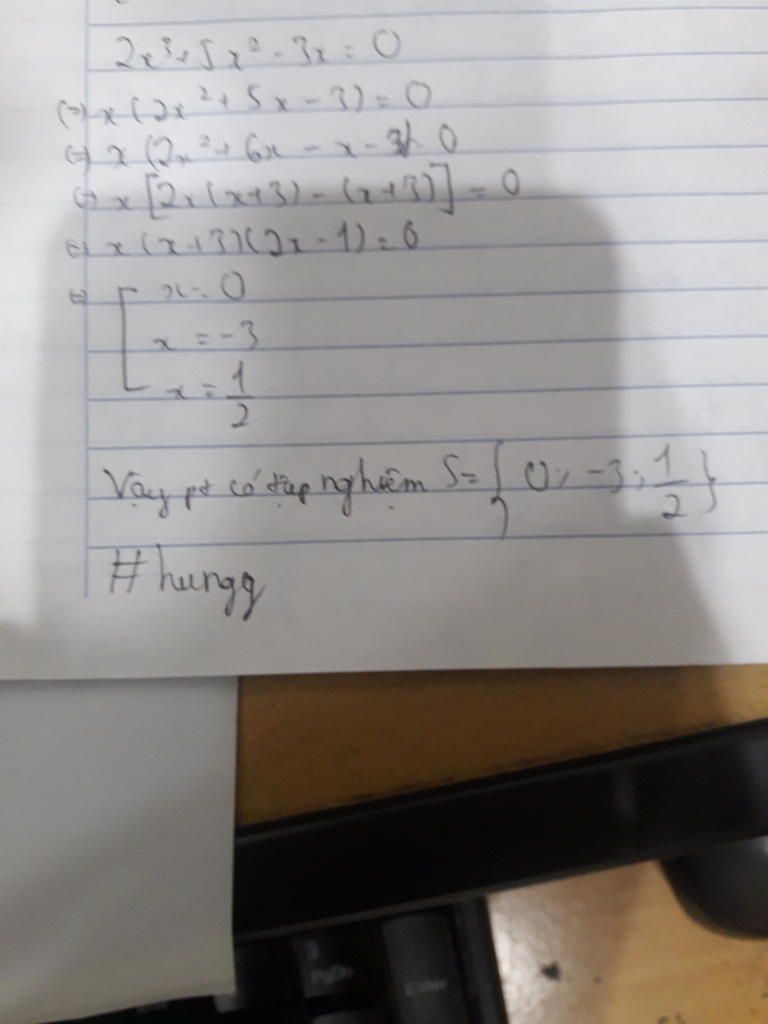 2x³ + 5x² - 3x = 0
(=) x(2x² + 5x - 3) = 0
(=) x(2x² + 6x - x - 3) = 0
(=) x[2x(x+3) - (x+3)] = 0
(=) x(x+3)(2x - 1) = 0
(=) [ x = 0
x = -3
x = 1/2
Vậy pt có tập nghiệm S = { 0; -3; 1/2 }
#hungg
PgDn
Enter